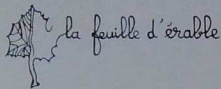 la feuille d'érable